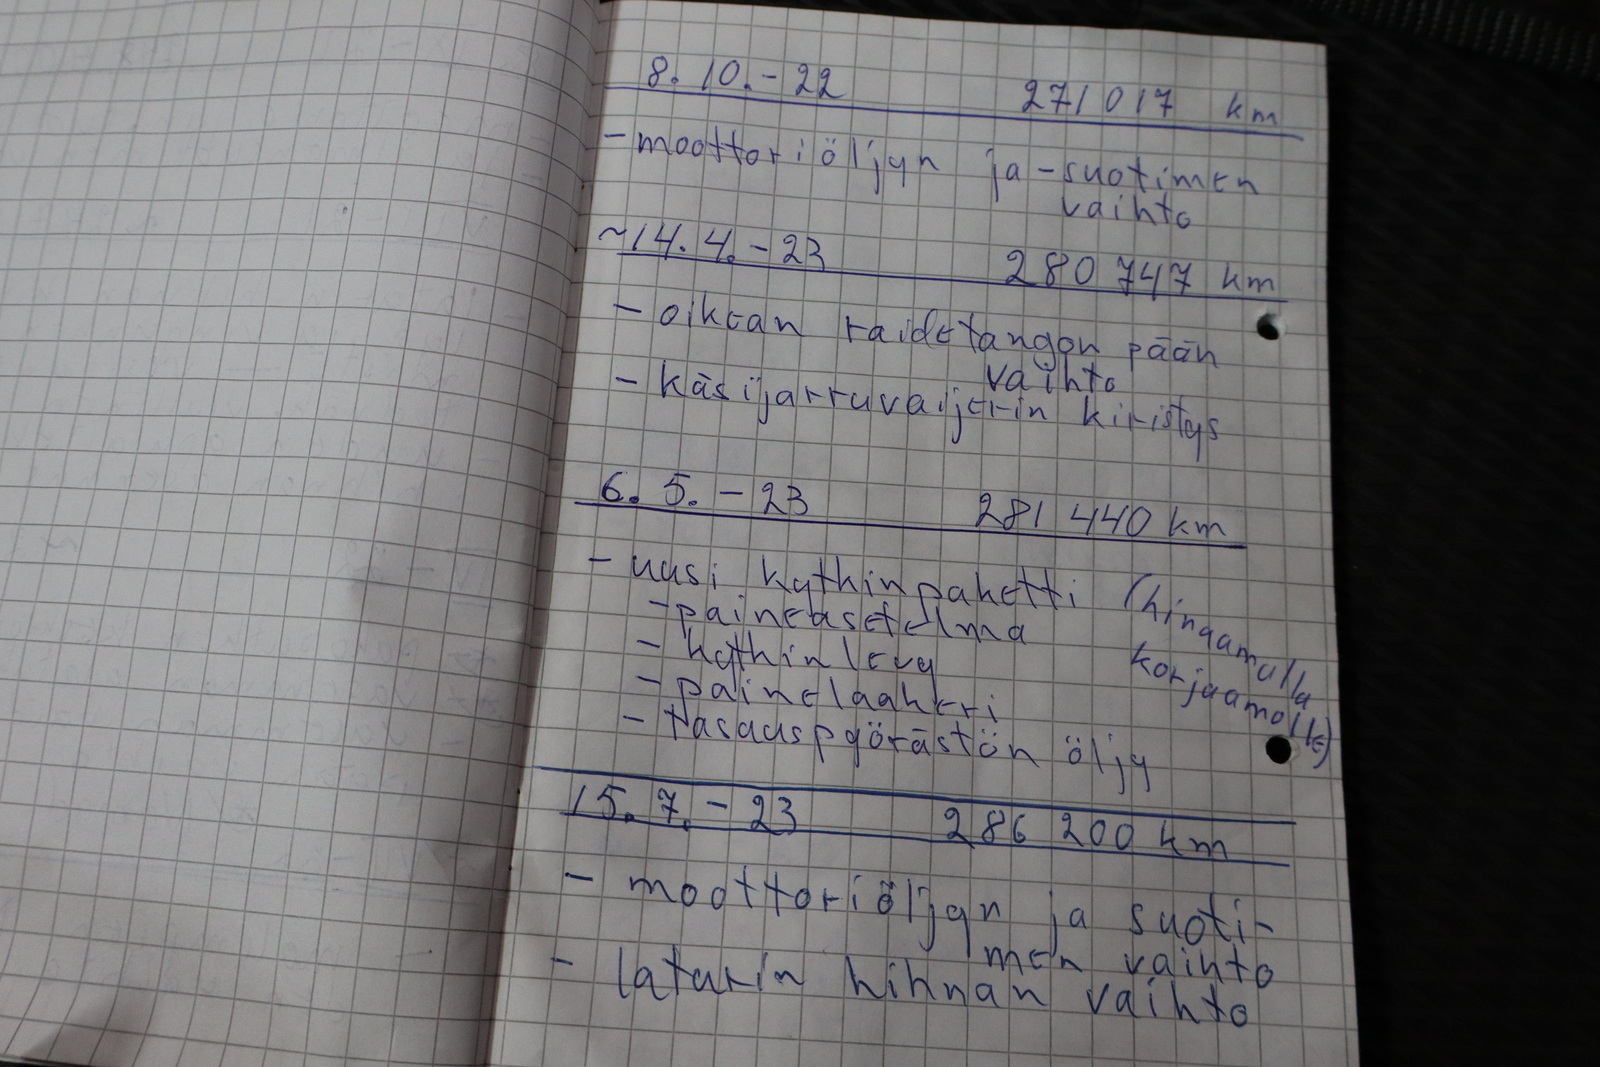 8. 10. - 22 271 017 km
- moottoriöljyn ja -suotimen
vaihto
~14. 4. - 23 280 747 km
- oikean raidetangon pään
vaihto
- käsijarruvaijerin kiristys
6. 5. - 23 281 440 km
- uusi kytkinpaketti (hinaamalla
- paineasetelma
korjaamolle)
- kytkinlevy
- painelaakeri
- tasauspyörästön öljy
15. 7. - 23 286 200 km
- moottoriöljyn ja suoti-
men vaihto
- laturin hihnan vaihto